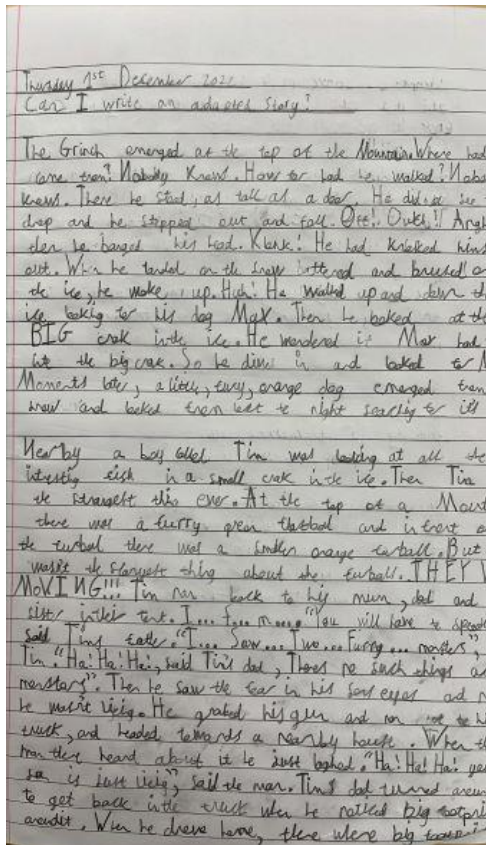 Thursday 1st December 2022
Can I write an adapted story?
The Grinch emerged at the top of the Mountain. Where had
come from? Nobody knows. How far had he walked? Nobo
knows. There he stood, as tall as a door. He did not see
drop and he stepped out and fell. Off!. Ouch!! Argh
then he banged his head. Klank! He had knoked hims
out. When he landed on the snow battered and bruised on
the ice, he woke up. Huh! He walked up and down the
ice looking for his dog Max. Then he looked at the
BIG crak in the ice. He wondered if Max had
the big crak. So he dived in and looked for M
Moments later, a little, furry, orange dog emerged from
snow and looked from left to right searching for it's
Nearby a boy called Tim was looking at all the
fish in a small crak in the ice. Then Tim
the strangest this ever. At the top of a Mount
there was a furry green and infront of
the furball there was a smaller orange furball. But
wasn't the strangest thing about the furball. THEY W
MOVING!!! Tim ran back to his mum, dad and
sister in their tent. I... I... m... "You will have to speak
said Tim's father. "I... Saw... Two... Furry... monsters",
Tim. "Ha! Ha! Ha!, said Tim's dad, Theres no such things as
monsters". Then he saw the fear in his sons eyes and
he wasn't . He grabed his gun and ran to hi
truck, and headed towards a nearby house. When th
man there heard about it he just laghed. "Ha! Ha! Ha! you
son is just ", said the man. Tim's dad turned aroun
to get back in the truck when he noticed big footpri
. When he drove home, there where big footpri